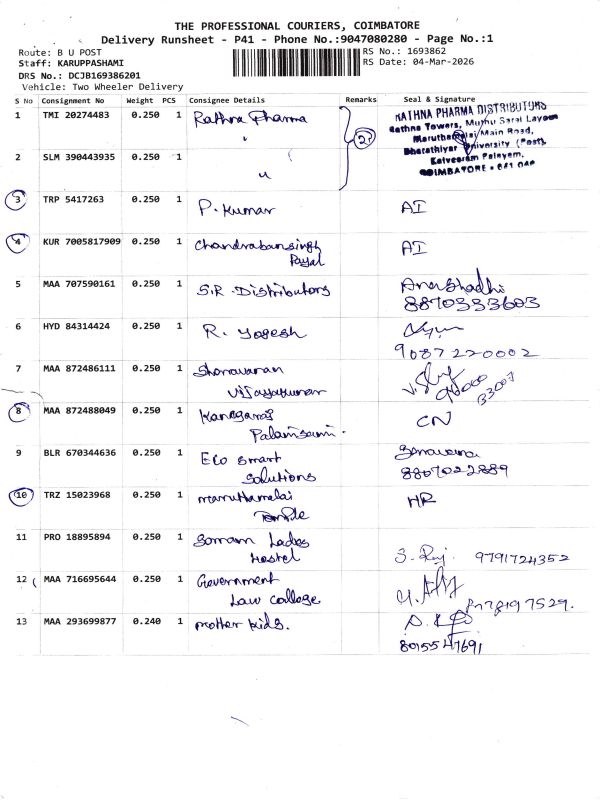 THE PROFESSIONAL COURIERS, COIMBATORE
Delivery Runsheet - P41 - Phone No.:9047080280 - Page No.:1
Route: B U POST
RS No.: 1693862
Staff: KARUPPASHAMI
RS Date: 04-Mar-2026
DRS No.: DCJB169386201
Vehicle: Two Wheeler Delivery
S No Consignment No Weight PCS Consignee Details Remarks Seal & Signature
1 TMI 20274483 0.250 1 Rathna Pharma
2
RATHNA PHARMA DISTRIBUTORS
Rathna Towers, Muthu Sarai Layout
Maruthamalai Main Road,
Bharathiyar University (Post),
Kalveeram Palayam,
COIMBATORE - 641 046
2 SLM 390443935 0.250 1 "
3 TRP 5417263 0.250 1 P. Kumar AI
4 KUR 7005817909 0.250 1 Chandrabansingh AI
Payal
5 MAA 707590161 0.250 1 S.R. Distributors
8870333603
6 HYD 84314424 0.250 1 R. Yogesh
9087220002
7 MAA 872486111 0.250 1 Sharavanan
Vijayakumar
8 MAA 872488049 0.250 1 Kanagaraj CN
Palanisami.
9 BLR 670344636 0.250 1 Eco Smart
Solutions 8807022889
10 TRZ 15023968 0.250 1 Maruthamalai HR
Temple
11 PRO 18895894 0.250 1 Ladies
Hostel 9791724352
12 MAA 716695644 0.250 1 Government
Law College
13 MAA 293699877 0.240 1 Mother kids.
8015547691